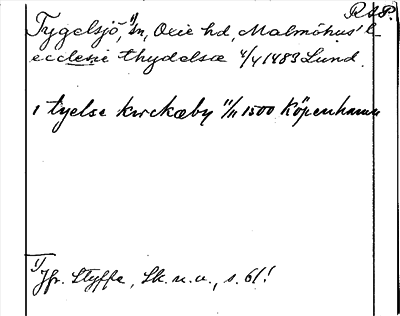 RAP.
Tygelsjö,¹⁾ sn, Oxie hd, Malmöhus l.
ecclesie thydelsæ 4/4 1483 Lund.
i tyelse kirckæby 11/11 1500 Köpenhamn
1)
Jfr. Styffe, Sk. u. u., s. 61!